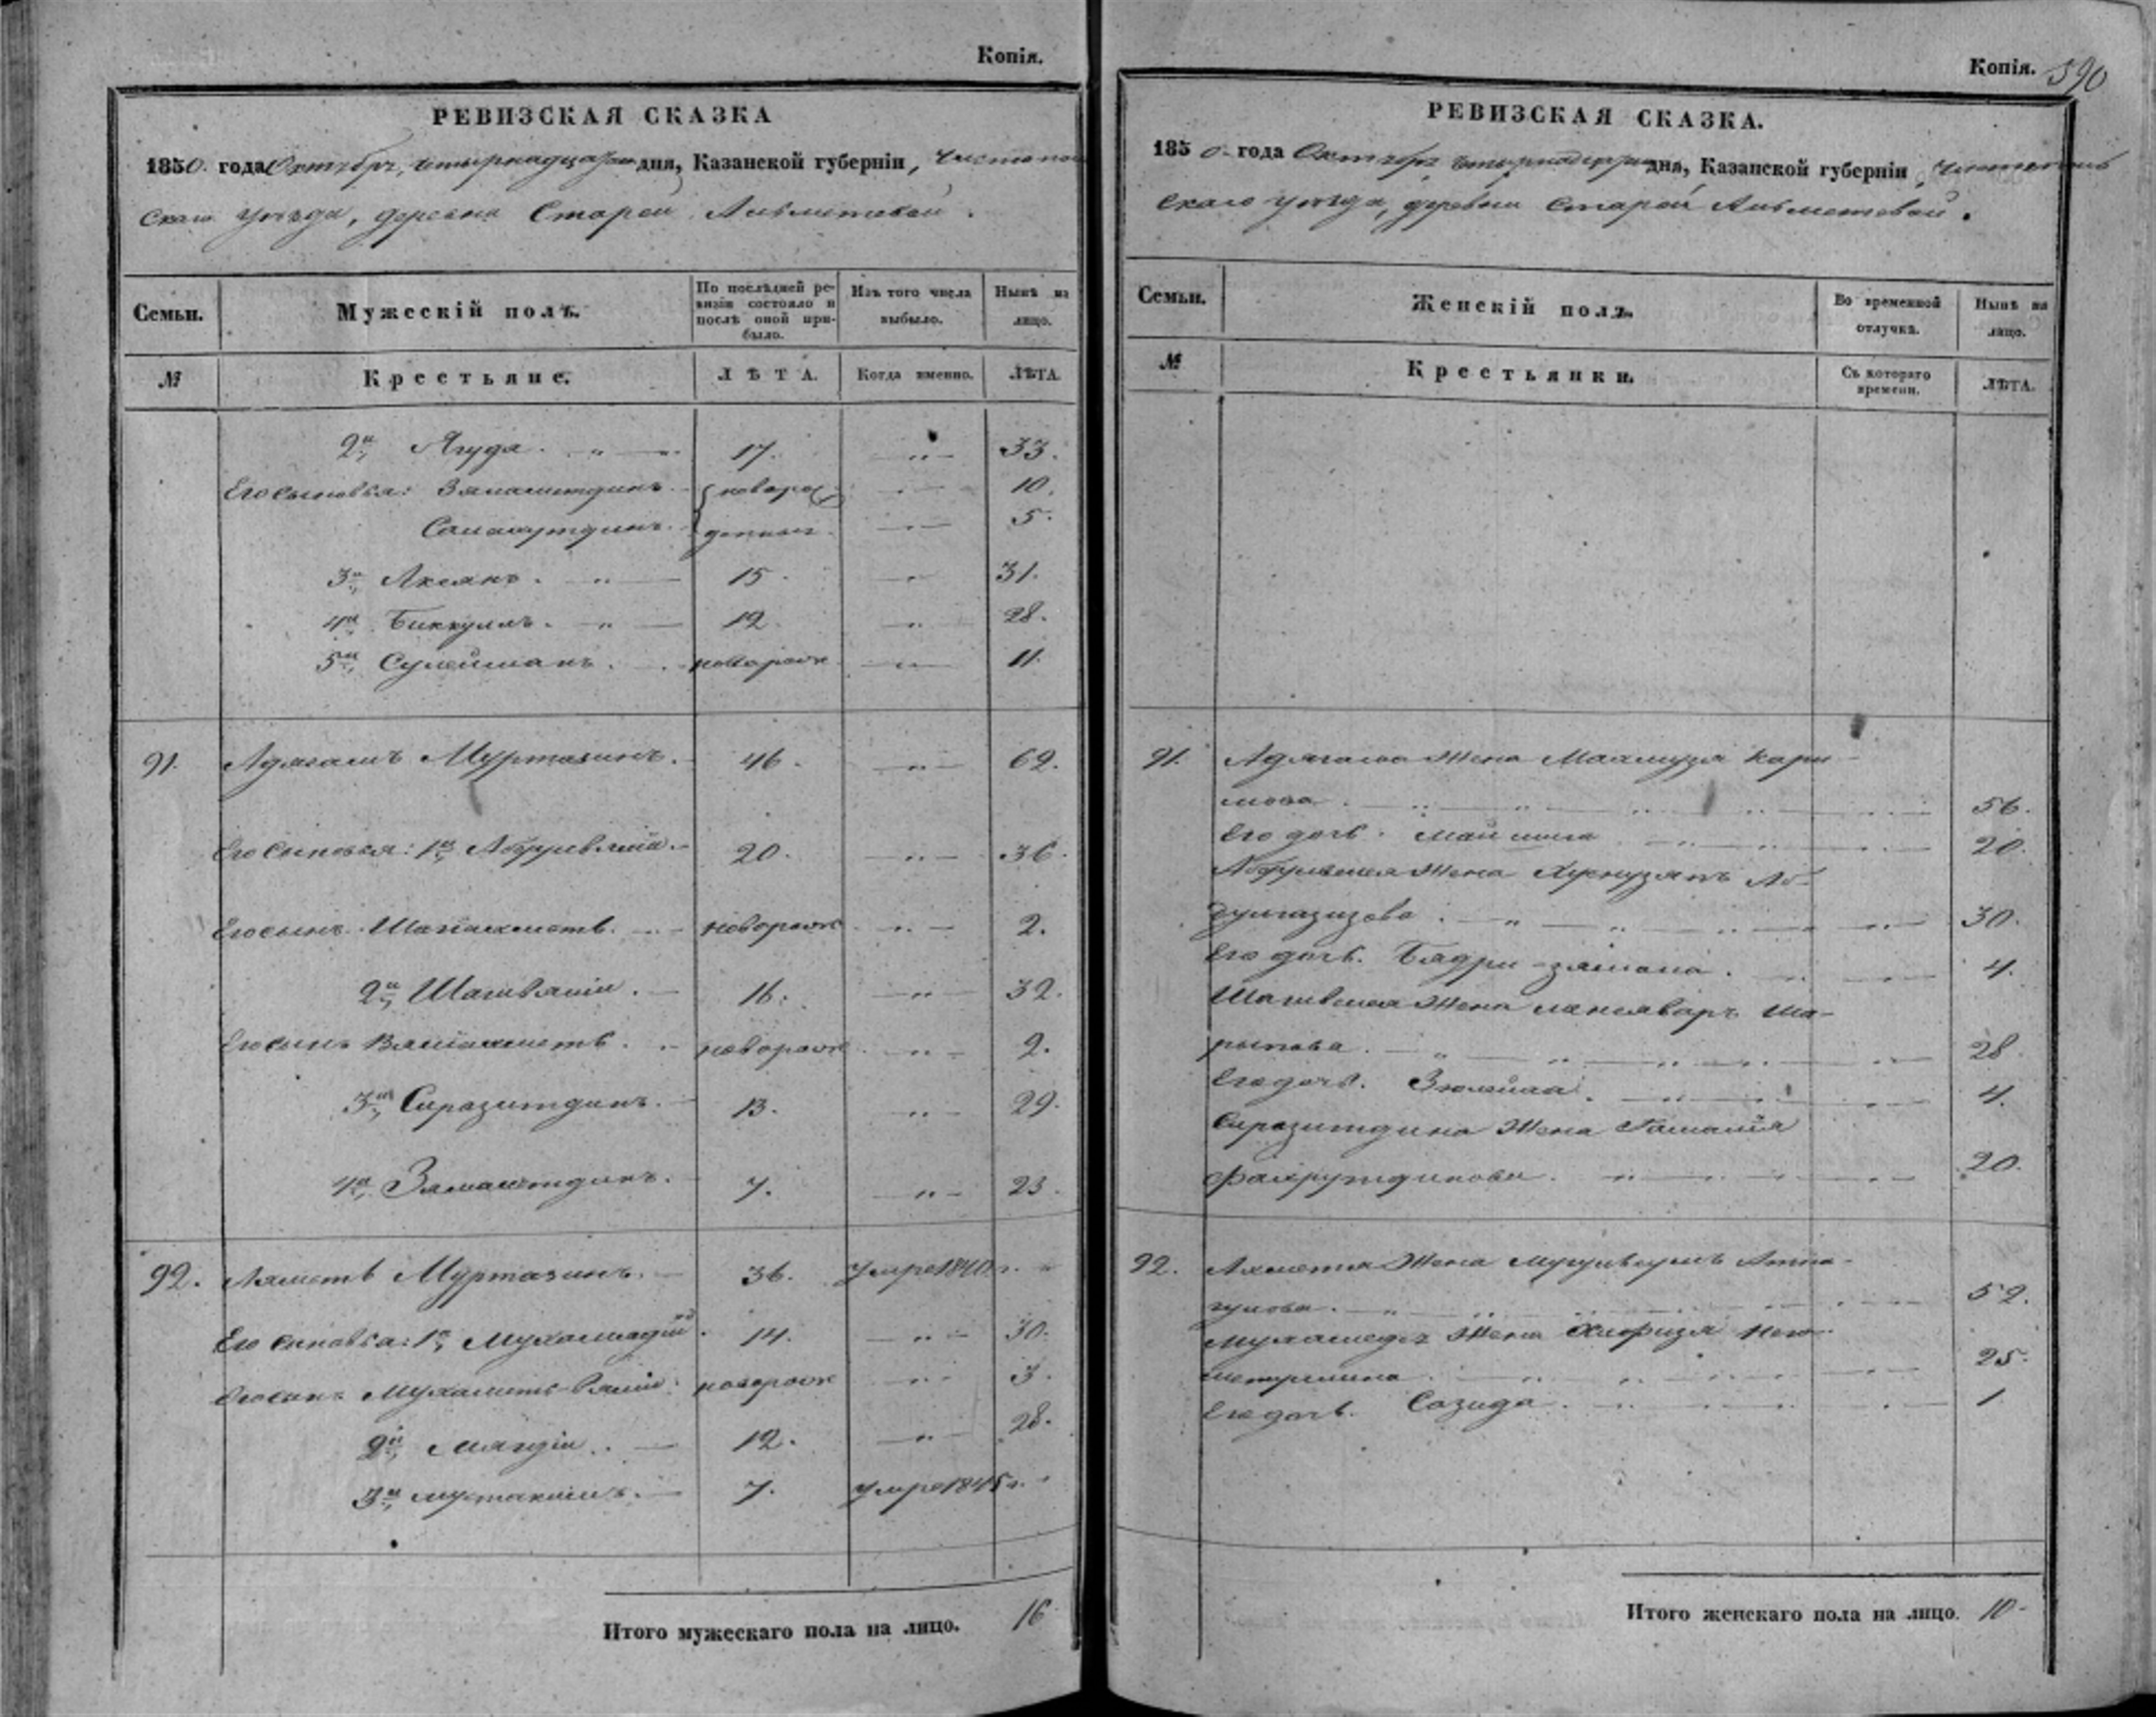 Копія.
РЕВИЗСКАЯ СКАЗКА
1850. года Октября, четырнадцатаго дня, Казанской губерніи, Чистополь
скаго уѣзда, деревни Старой Альметевой.
Семьи. Мужескій полъ. По послѣдней ревизіи состояло и послѣ оной прибыло. Изъ того числа выбыло. Нынѣ на лицо.
№ Крестьяне. ЛѢТА. Когда именно. ЛѢТА.
2й, Ягуда. " 17. " 33.
Его сыновья: Зямалитдинъ. новорож " 10.
Салахутдинъ. денные " 5.
3й, Аксянъ. " 15. " 31.
4й, Биккулъ. " 12. " 28.
5й, Сулейманъ. новорож " 11.
91. Адягамъ Муртазинъ. 46. " 62.
Его сыновья: 1й, Абдулвялій. 20. " 36.
Его сынъ Шагіахметъ. новорож " 2.
2й, Шагивялій. 16. " 32.
Его сынъ Вяліахметъ. новорож " 2.
3й, Сиразитдинъ. 13. " 29.
4й, Замалитдинъ. 7. " 23.
92. Ахметь Муртазинъ. 36. Умре 1840 г. "
Его сыновья: 1й, Мухаммадій. 14. " 30.
Его сынъ Мухаметь-Вялій. новорож " 3.
2й, Мягдій. 12. " 28.
3й, Мустакимъ. 7. Умре 1845 г. "
Итого мужескаго пола на лицо. 16
Копія. 590
РЕВИЗСКАЯ СКАЗКА.
1850. года Октября четырнадцатаго дня, Казанской губерніи, Чистополь
скаго уѣзда, деревни Старой Альметевой.
Семьи. Женскій полъ. Во временной отлучкѣ. Нынѣ на лицо.
№ Крестьянки. Съ котораго времени. ЛѢТА.
91. Адягама Жена Маамузя Кари-
мова. " 56.
Его дочь. Маймина " 20.
Абдулвялея Жена Хуснузянъ Аб-
дулгазизова. " 30.
Его дочь. Бадри-зямала. " 4.
Шагивялея Жена Ша-
рыпова. " 28.
Его дочь. Зюлейха. " 4.
Сиразитдина Жена Гамалія
Фахрутдинова. " 20.
92. Ахметя Жена
гулова. " 52.
Мухамедея Жена
25.
Его дочь. Сазида. " 1.
Итого женскаго пола на лицо. 10